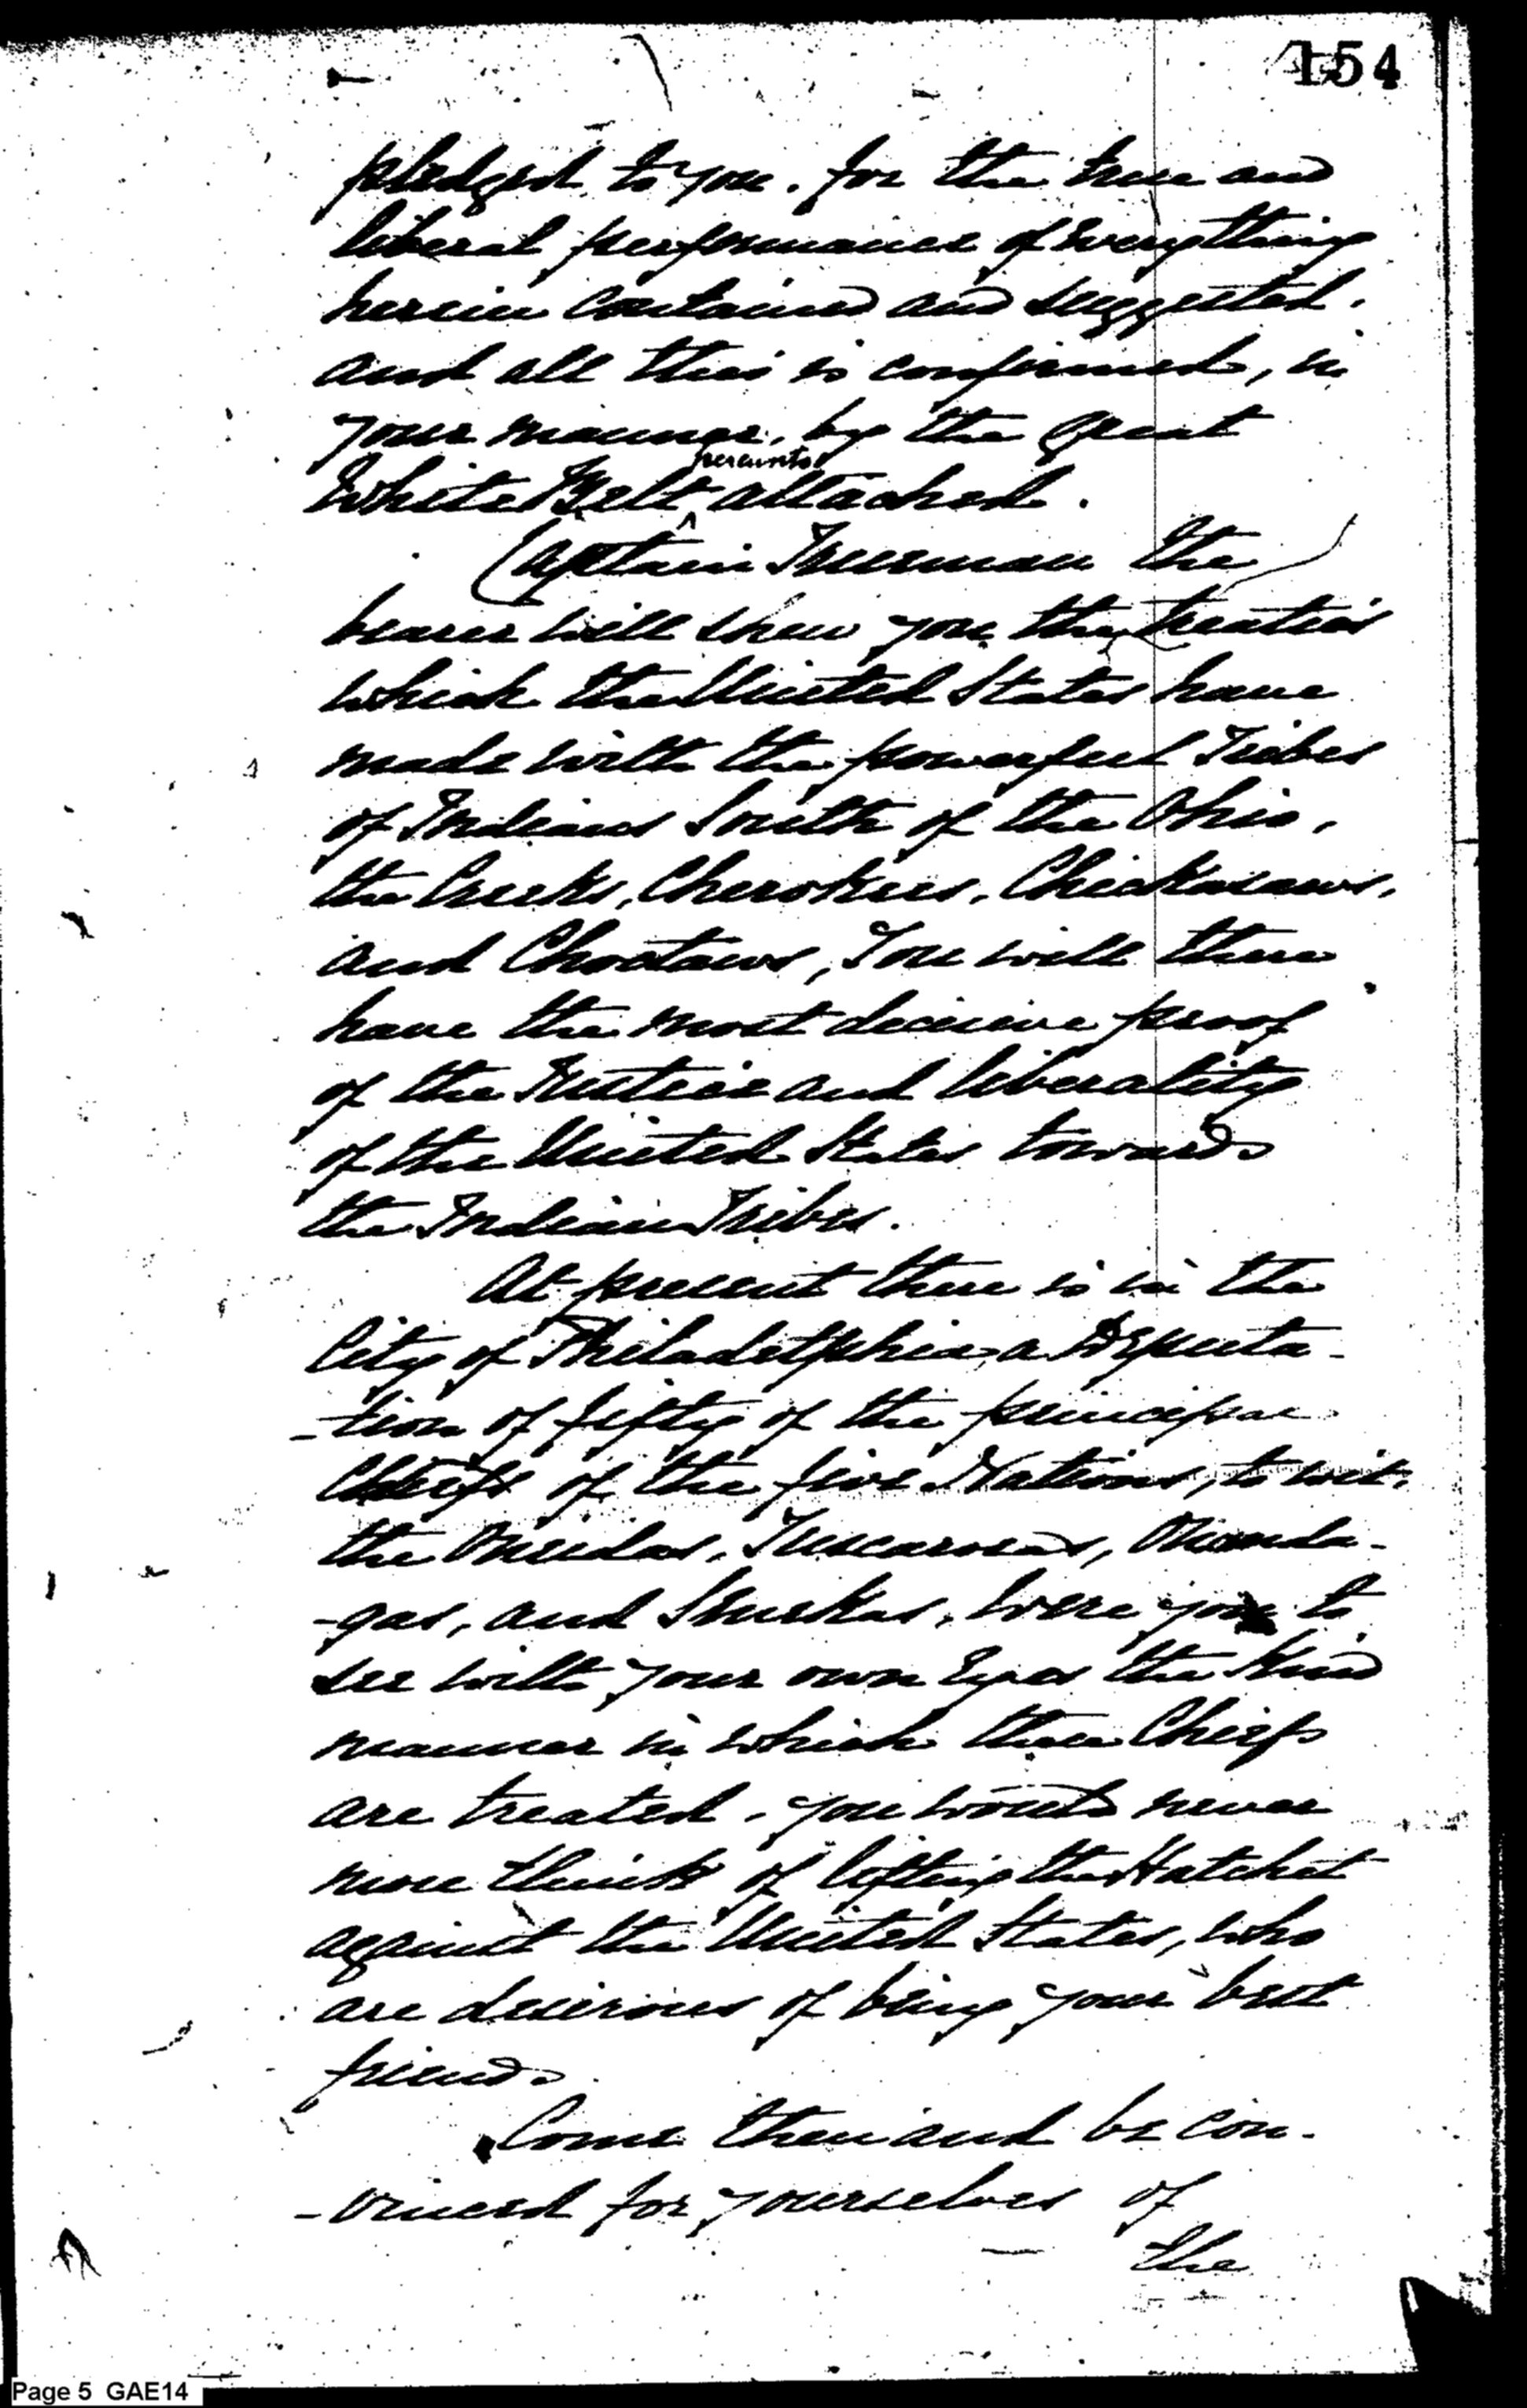 154
pledged to you. for the true and
liberal performance of everything
herein contained and suggested.
and all this is confirmed, in
your manner, by the great
hereunto
White Belt ^ attached.
Captain Trueman the
bearer will shew you the treaties
which the United States have
made with the powerful Tribes
of Indians South of the Ohio,
the Creeks, Cherokees, Chickasaws,
and Choctaws, You will there
have the most decisive proof
of the Justice and liberality
of the United States towards
the Indian Tribes.
At present there is in the
City of Philadelphia, a Deputa-
-tion of fifty of the principal
Chiefs of the five Nations, to wit,
the Oneidas, Tuscaroras, Ononda-
-gas, and Senekas, were you to
see with your own Eyes the kind
manner in which these Cheifs
are treated, you would never
more think of lifting the Hatchet
against the United States, who
are desirous of being your best
friends.
Come then and be con-
-vinced for yourselves of
the
Page 5 GAE14